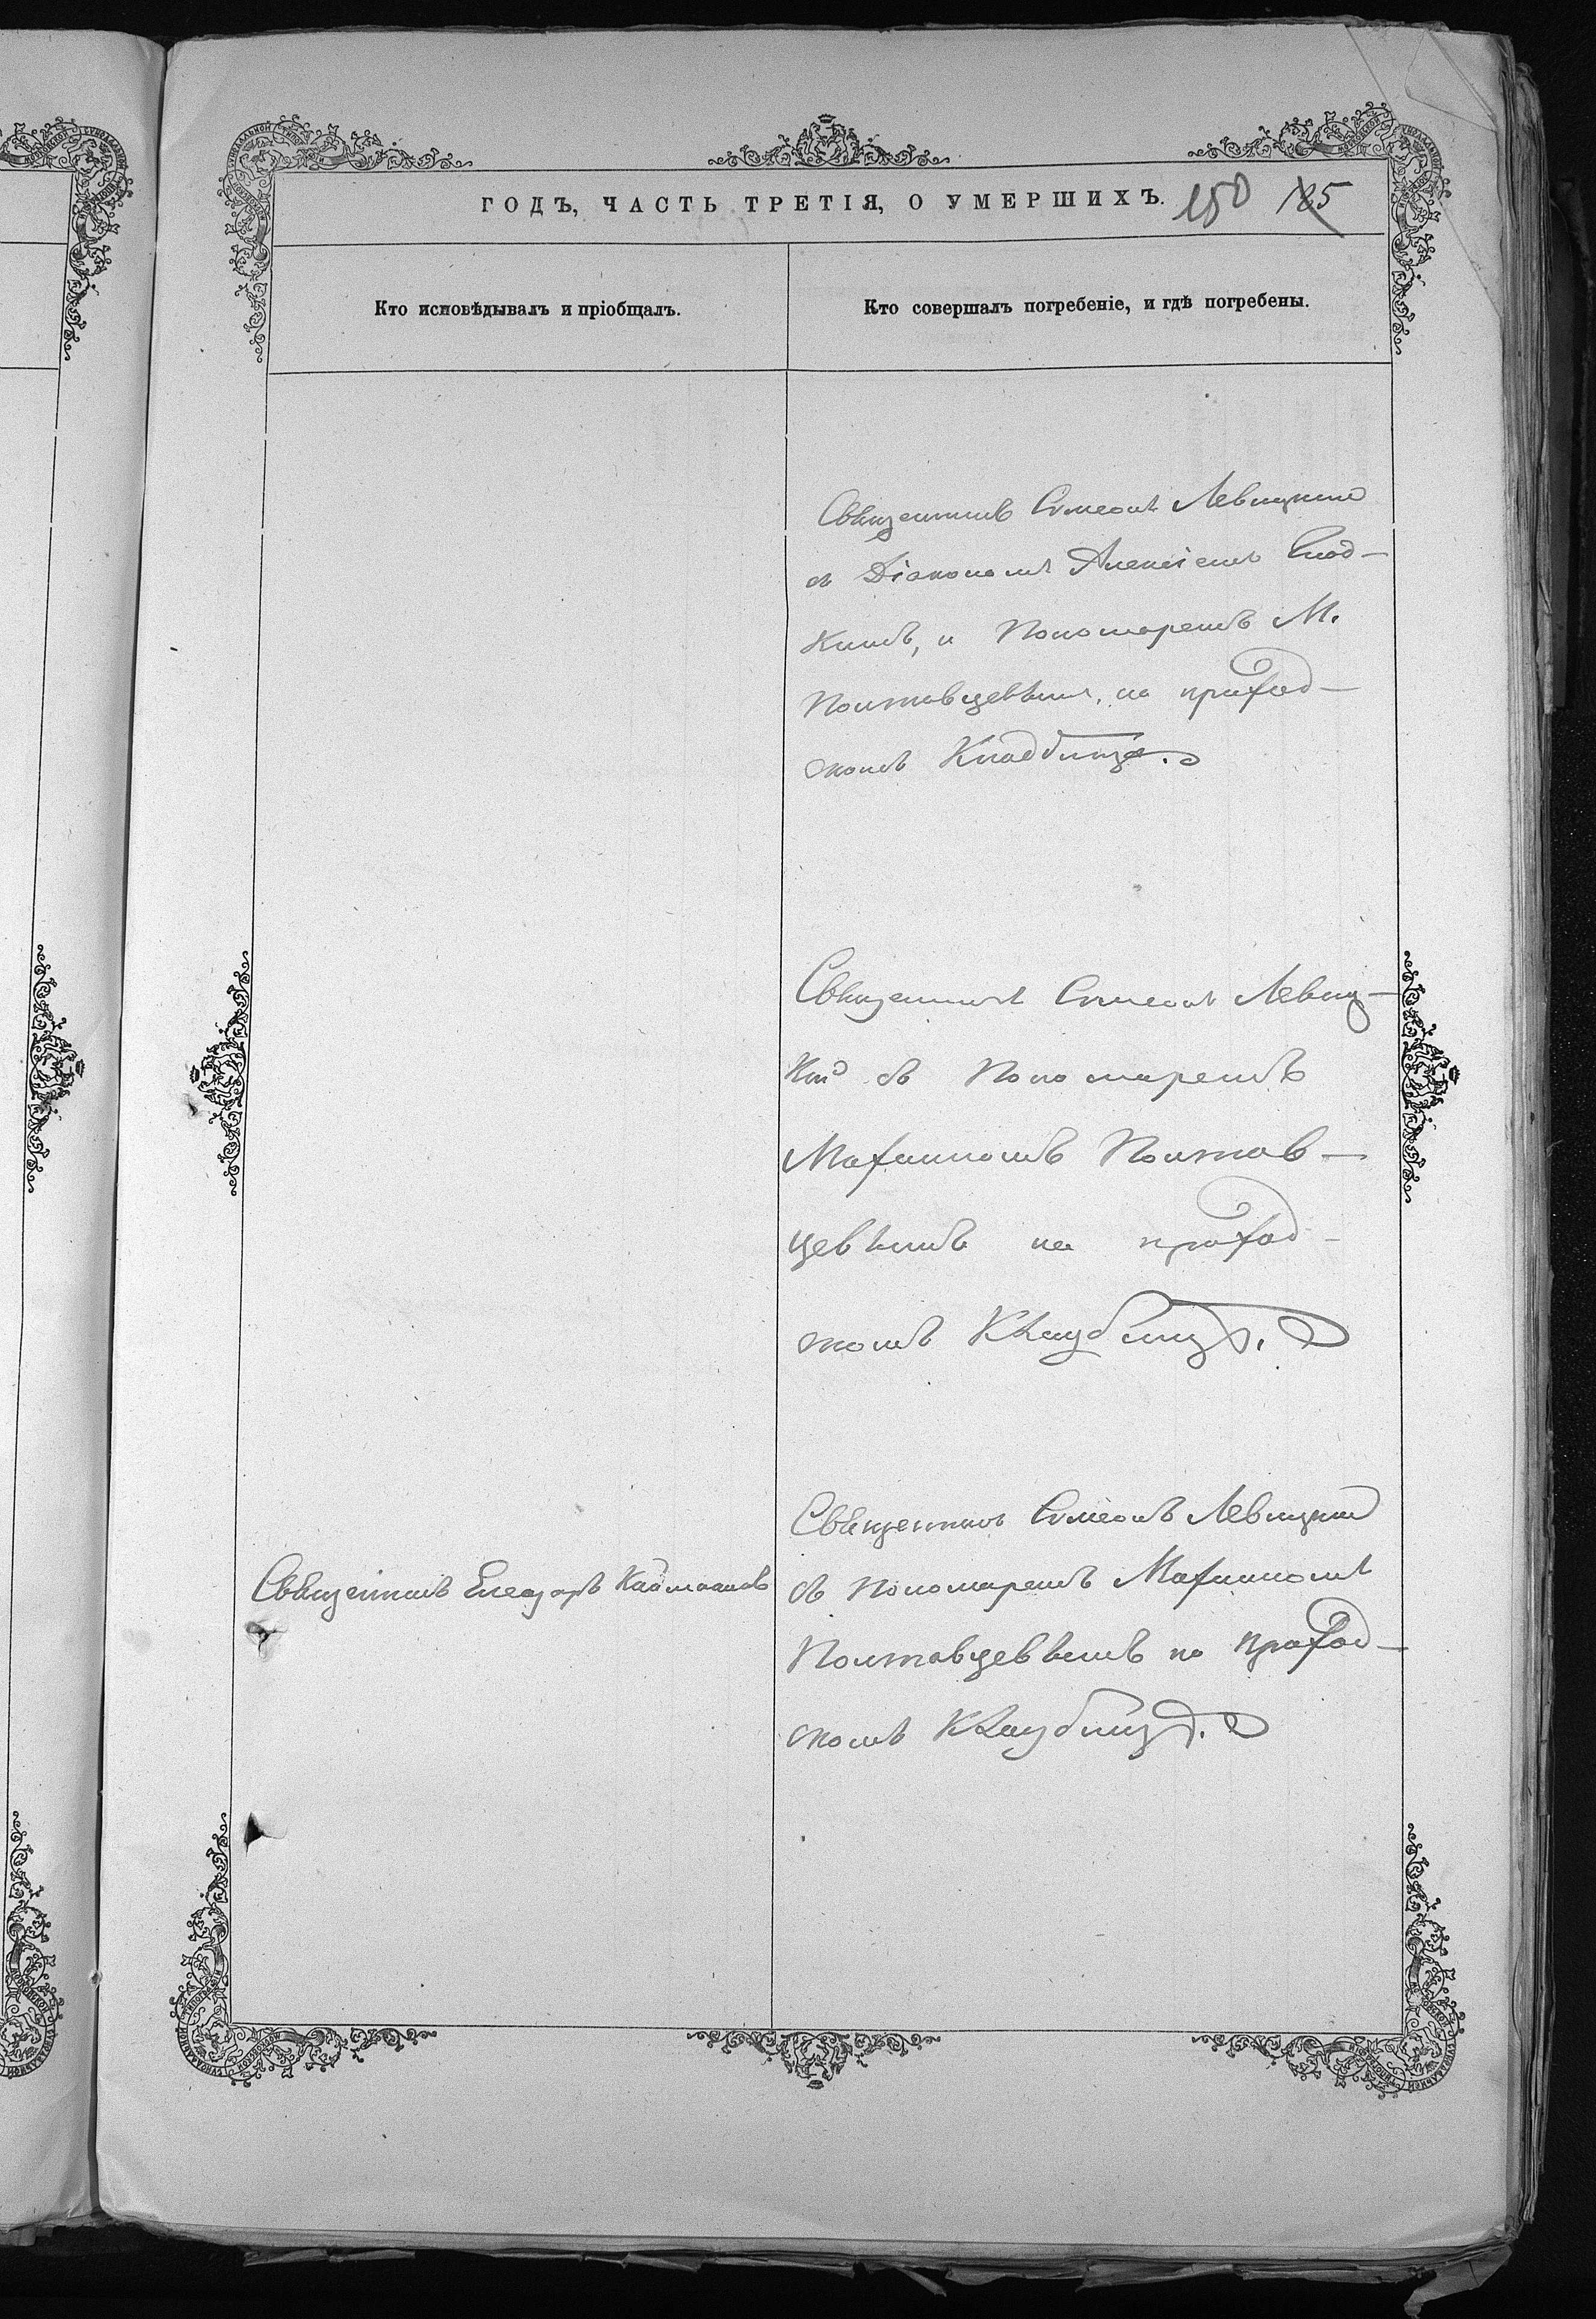 ГОДЪ, ЧАСТЬ ТРЕТІЯ, О УМЕРШИХЪ. 150 185
Кто исповѣдывалъ и пріобщалъ.
Кто совершалъ погребеніе, и гдѣ погребены.
Священникъ Симеонъ Левицкій
съ Діакономъ Алексіемъ
и Пономаремъ М.
Полтавцевымъ, на приход-
скомъ Кладбищѣ.
Священникъ Симеонъ Левиц-
кій съ Пономаремъ
Мафиномъ Полтав-
цевымъ на приход-
скомъ Кладбищѣ.
Священникъ Елеазаръ
Священникъ Симеонъ Левицкій
съ Пономаремъ Мафиномъ
Полтавцевымъ на приход-
скомъ Кладбищѣ.